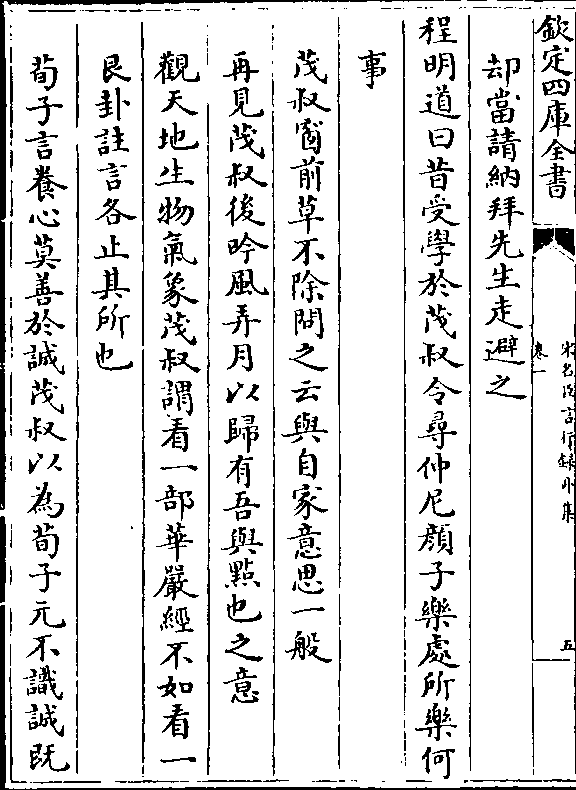 欽定四庫全書
宋名臣言行録外集
卷一
五
却當請納拜先生走避之
程明道曰昔受學於茂叔令尋仲尼顔子樂處所樂何
事
茂叔窗前草不除問之云與自家意思一般
再見茂叔後吟風弄月以歸有吾與㸃也之意
觀天地生物氣象茂叔謂看一部華嚴經不如看一
艮卦註言各止其所也
荀子言養心莫善於誠茂叔以為荀子元不識誠既